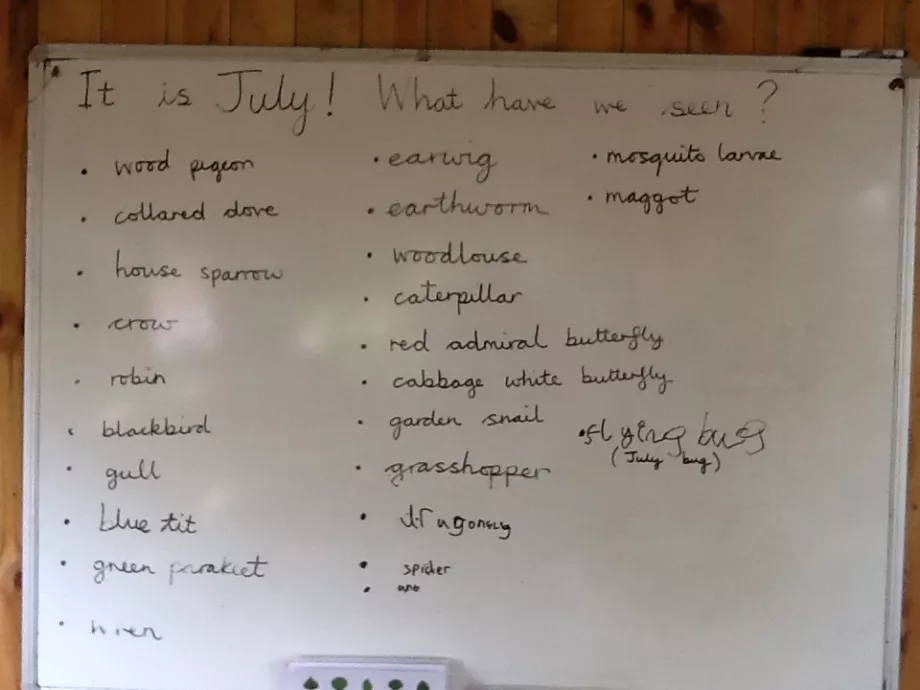 It is July! What have we seen?
• wood pigeon
• collared dove
• house sparrow
• crow
• robin
• blackbird
• gull
• blue tit
• green parakeet
• wren
• earwig
• earthworm
• woodlouse
• caterpillar
• red admiral butterfly
• cabbage white butterfly
• garden snail
• grasshopper
• dragonfly
• spider
• ant
• mosquito larvae
• maggot
• flying bug
(July bug)